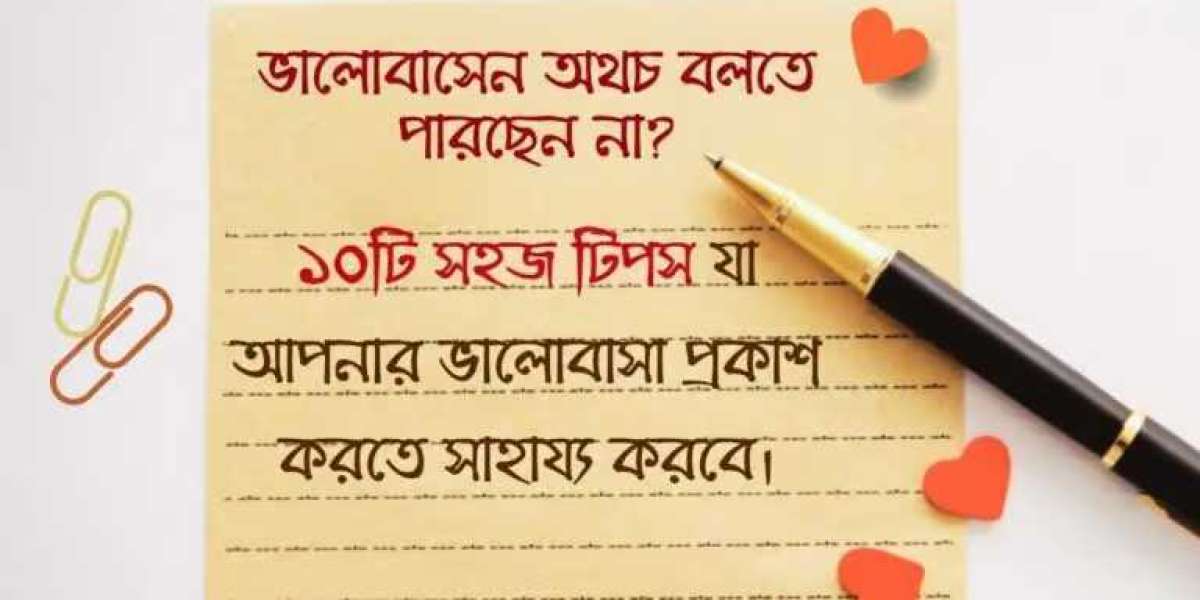 ভালোবাসেন অথচ বলতে
পারছেন না?
১০টি সহজ টিপস যা
আপনার ভালোবাসা প্রকাশ
করতে সাহায্য করবে।